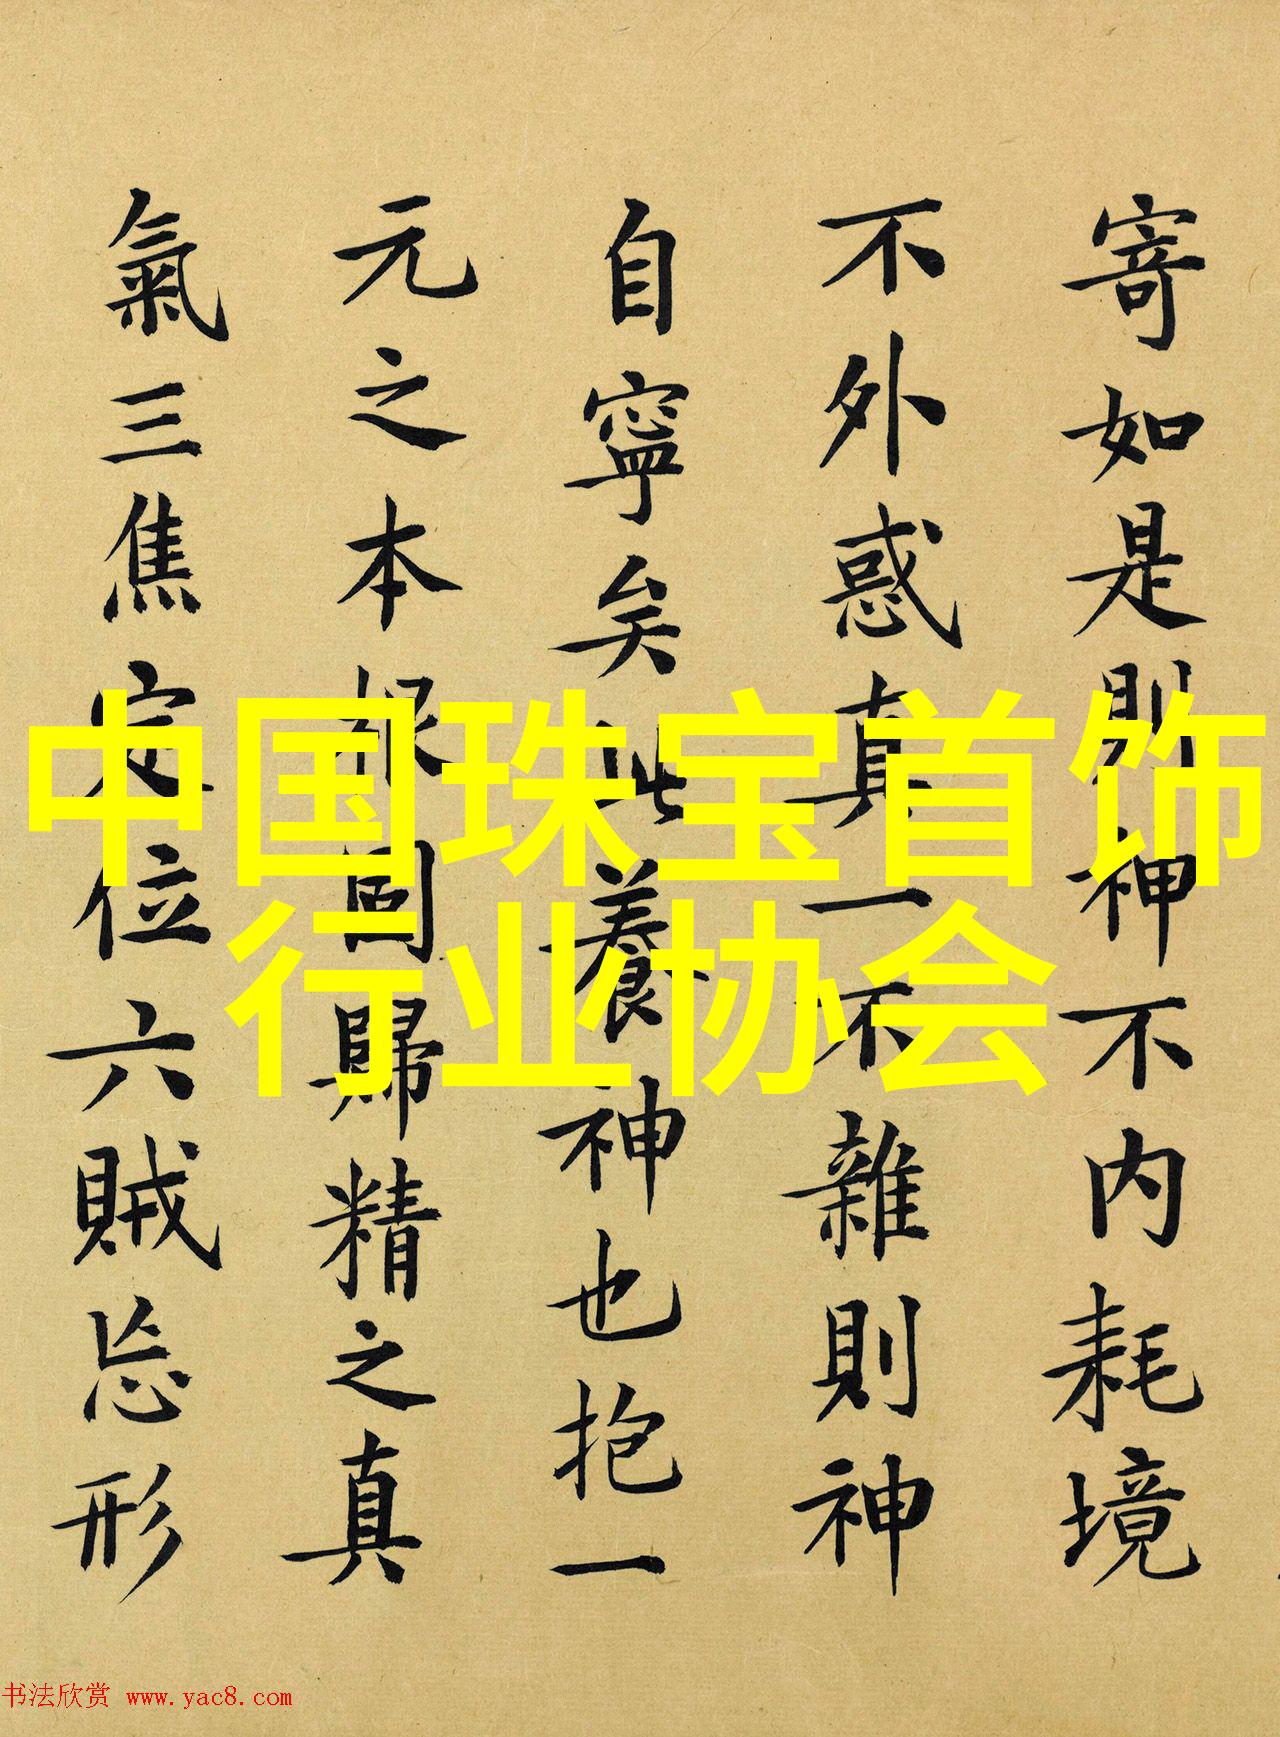 寄如是則神不内耗境
不外惑真一不雜則神
自寧矣此養神也抱一
元之本根固歸精之真
氣三焦定位六賊忘形
中国珠宝首饰
行业协会
书法欣赏 www.yac8.com